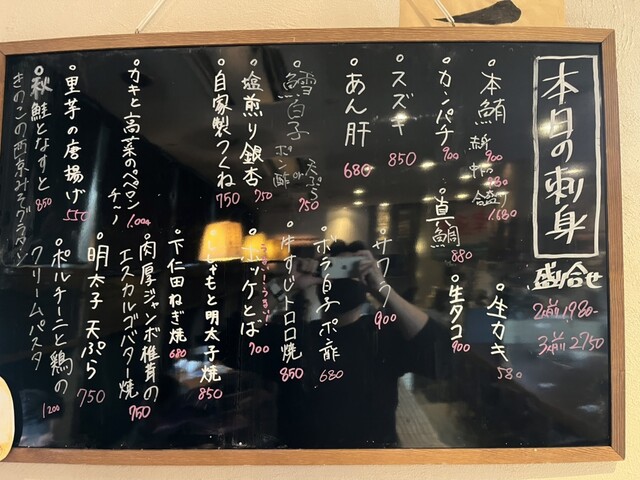 本日の刺身
盛合せ
2人前 1980-
3人前 2750
本鮪 赤身 900
合盛り 1.680
生カキ 580
カンパチ 900
真鯛 880
生タコ 900
スズキ 850
サワラ 900
あん肝 680
ボラ白子ポン酢 680
鱈白子 ポン酢 or 天ぷら 750
牛すじトロロ焼 850
塩煎り銀杏 750
ホッケとば 700
自家製つくね 750
もと明太子焼 850
下仁田ねぎ焼 680
カキと高菜のペペロンチーノ 1,000
肉厚ジャンボ椎茸の
エスカルゴバター焼 750
里芋の唐揚げ 550
明太子 天ぷら 750
秋鮭となすと
きのこの西京みそグラタン 850
ポルチーニと鶏の
クリームパスタ 1200